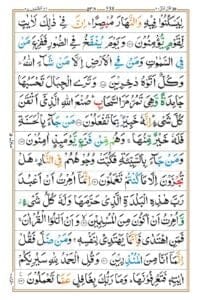 لِيَسْكُنُوْا فِيْهِ وَالنَّهَارَ مُبْصِرًا ؕ اِنَّ فِيْ ذٰلِكَ لَاٰيٰتٍ
لِّقَوْمٍ يُّؤْمِنُوْنَ ۝ وَيَوْمَ يُنْفَخُ فِي الصُّوْرِ فَفَزِعَ مَنْ
فِي السَّمٰوٰتِ وَمَنْ فِي الْاَرْضِ اِلَّا مَنْ شَآءَ اللّٰهُ ؕ
وَكُلٌّ اَتَوْهُ دٰخِرِيْنَ ۝ وَتَرَى الْجِبَالَ تَحْسَبُهَا
جَامِدَةً وَّهِيَ تَمُرُّ مَرَّ السَّحَابِ ؕ صُنْعَ اللّٰهِ الَّذِيْٓ اَتْقَنَ
كُلَّ شَيْءٍ ؕ اِنَّهٗ خَبِيْرٌۢ بِمَا تَفْعَلُوْنَ ۝ مَنْ جَآءَ بِالْحَسَنَةِ
فَلَهٗ خَيْرٌ مِّنْهَا ۚ وَهُمْ مِّنْ فَزَعٍ يَّوْمَئِذٍ اٰمِنُوْنَ ۝
وَمَنْ جَآءَ بِالسَّيِّئَةِ فَكُبَّتْ وُجُوْهُهُمْ فِي النَّارِ ؕ هَلْ
تُجْزَوْنَ اِلَّا مَا كُنْتُمْ تَعْمَلُوْنَ ۝ اِنَّمَآ اُمِرْتُ اَنْ اَعْبُدَ
رَبَّ هٰذِهِ الْبَلْدَةِ الَّذِيْ حَرَّمَهَا وَلَهٗ كُلُّ شَيْءٍ
وَّاُمِرْتُ اَنْ اَكُوْنَ مِنَ الْمُسْلِمِيْنَ ۝ وَاَنْ اَتْلُوَا الْقُرْاٰنَ ۚ
فَمَنِ اهْتَدٰى فَاِنَّمَا يَهْتَدِيْ لِنَفْسِهٖ ۚ وَمَنْ ضَلَّ فَقُلْ
اِنَّمَآ اَنَا مِنَ الْمُنْذِرِيْنَ ۝ وَقُلِ الْحَمْدُ لِلّٰهِ سَيُرِيْكُمْ
اٰيٰتِهٖ فَتَعْرِفُوْنَهَا ؕ وَمَا رَبُّكَ بِغَافِلٍ عَمَّا تَعْمَلُوْنَ ۝